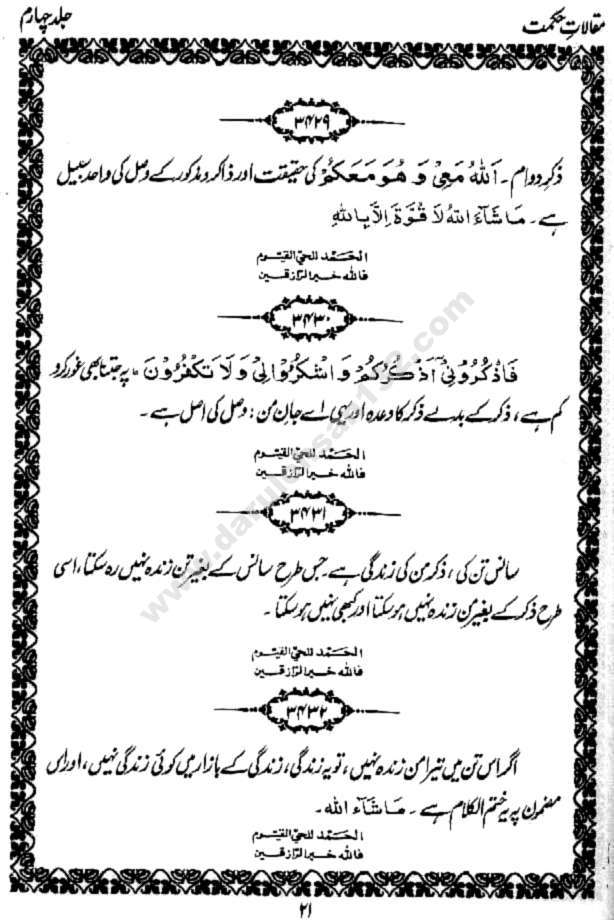 مقالاتِ حکمت
جلد چہارم
۳۴۲۹
ذکرِ دوام ۔ اَللّٰہُ مَعِیَ وَ ھُوَ مَعَکُمْ کی حقیقت اور ذاکر و مذکور کے وصل کی واحد سبیل
ہے ۔ مَا شَآءَ اللّٰہُ لَا قُوَّةَ اِلَّا بِاللّٰہِ
الحَمد للحیِّ القیّوم
فاللّٰه خیر الرّازقین
۳۴۳۰
فَاذْکُرُوْنِیْ اَذْکُرْکُمْ وَ اشْکُرُوْا لِیْ وَ لَا تَکْفُرُوْنَ ۔ پر جتنا بھی غور کرو
کم ہے ، ذکر کے بدلے ذکر کا وعدہ اور یہی اے جانِ من : وصل کی اصل ہے ۔
الحَمد للحیِّ القیّوم
فاللّٰه خیر الرّازقین
۳۴۳۱
سانس تن کی ، ذکر من کی زندگی ہے ۔ جس طرح سانس کے بغیر تن زندہ نہیں رہ سکتا ، اسی
طرح ذکر کے بغیر من زندہ نہیں ہو سکتا اور کبھی نہیں ہو سکتا ۔
الحَمد للحیِّ القیّوم
فاللّٰه خیر الرّازقین
۳۴۳۲
اگر اس تن میں تیرا من زندہ نہیں ، تو یہ زندگی ، زندگی کے بازار میں کوئی زندگی نہیں ، اور اس
مضمون پر یہ ختم الکلام ہے ۔ مَا شَآءَ اللّٰه ۔
الحَمد للحیِّ القیّوم
فاللّٰه خیر الرّازقین
۲۱